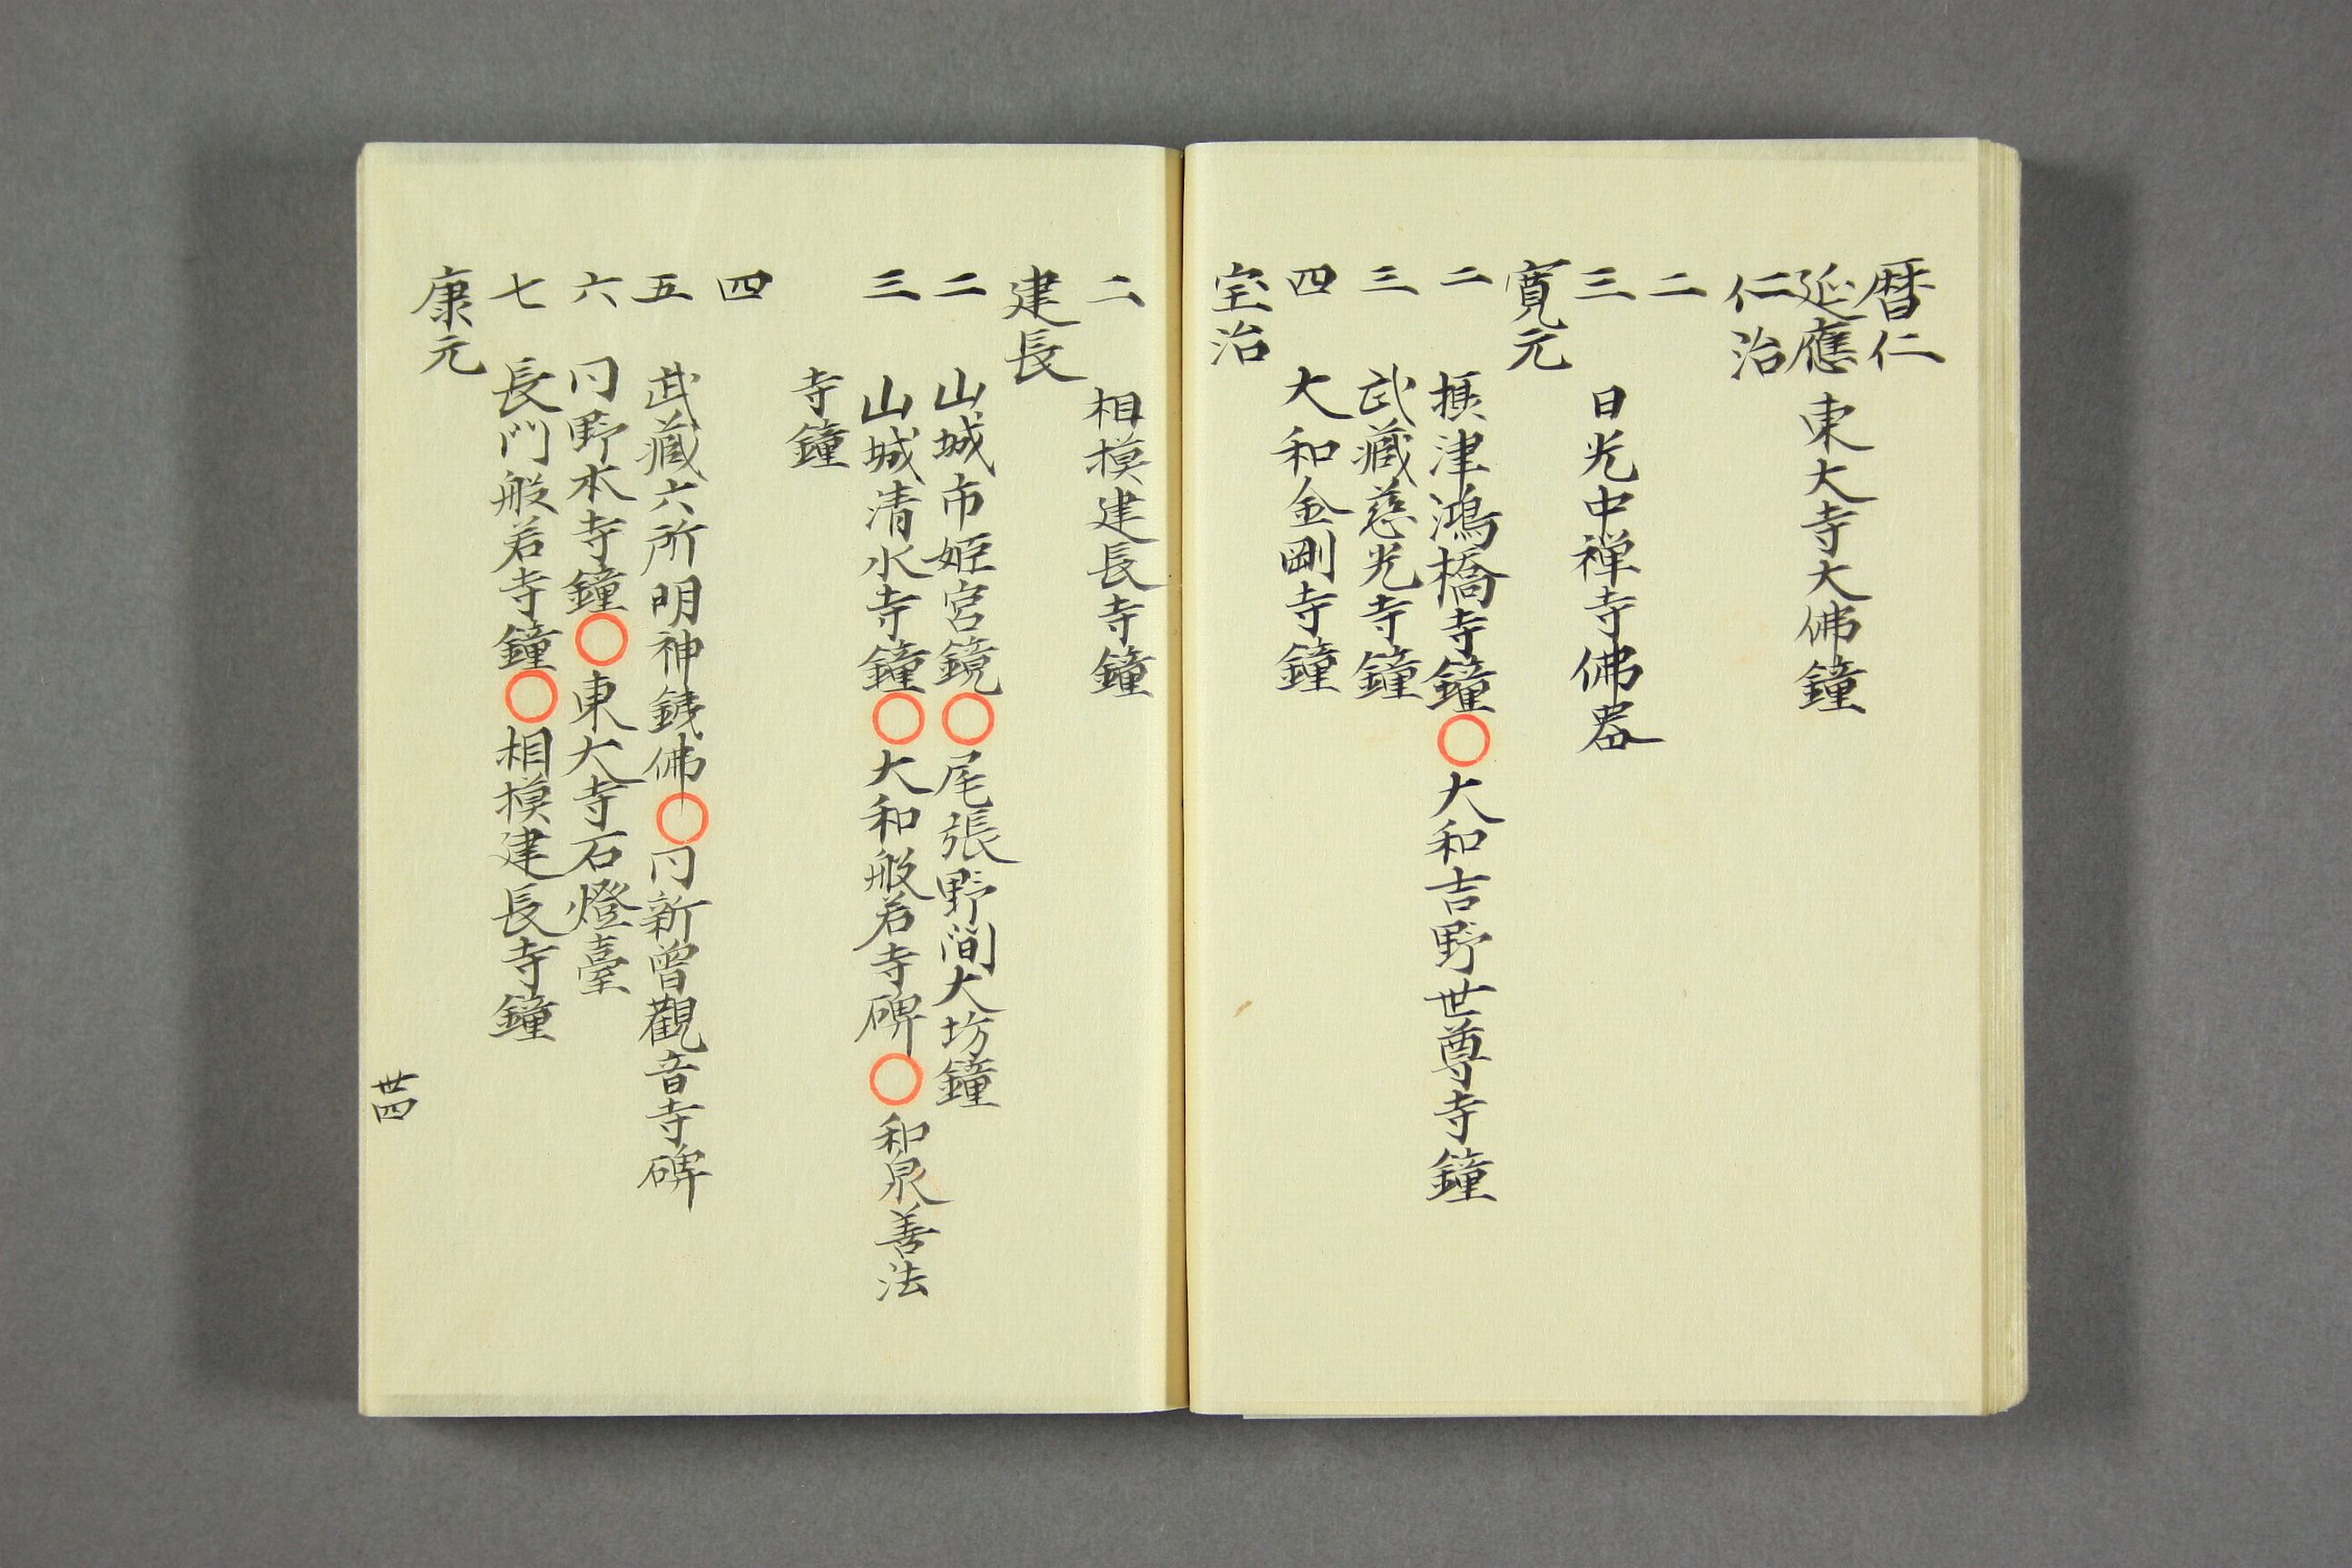 暦仁
延應 東大寺大佛鐘
仁治
二
三 日光中禅寺佛器
寛元
二 摂津鴻橋寺鐘○大和吉野世尊寺鐘
三 武藏慈光寺鐘
四 大和金剛寺鐘
宝治
二 相模建長寺鐘
建長
二 山城市姫宮鏡○尾張野間大坊鐘
三 山城清水寺鐘○大和般若寺碑○和泉善法
寺鐘
四
五 武藏六所明神銕佛○同新曽觀音寺碑
六 同野本寺鐘○東大寺石燈臺
七 長門般若寺鐘○相模建長寺鐘
康元
卅四